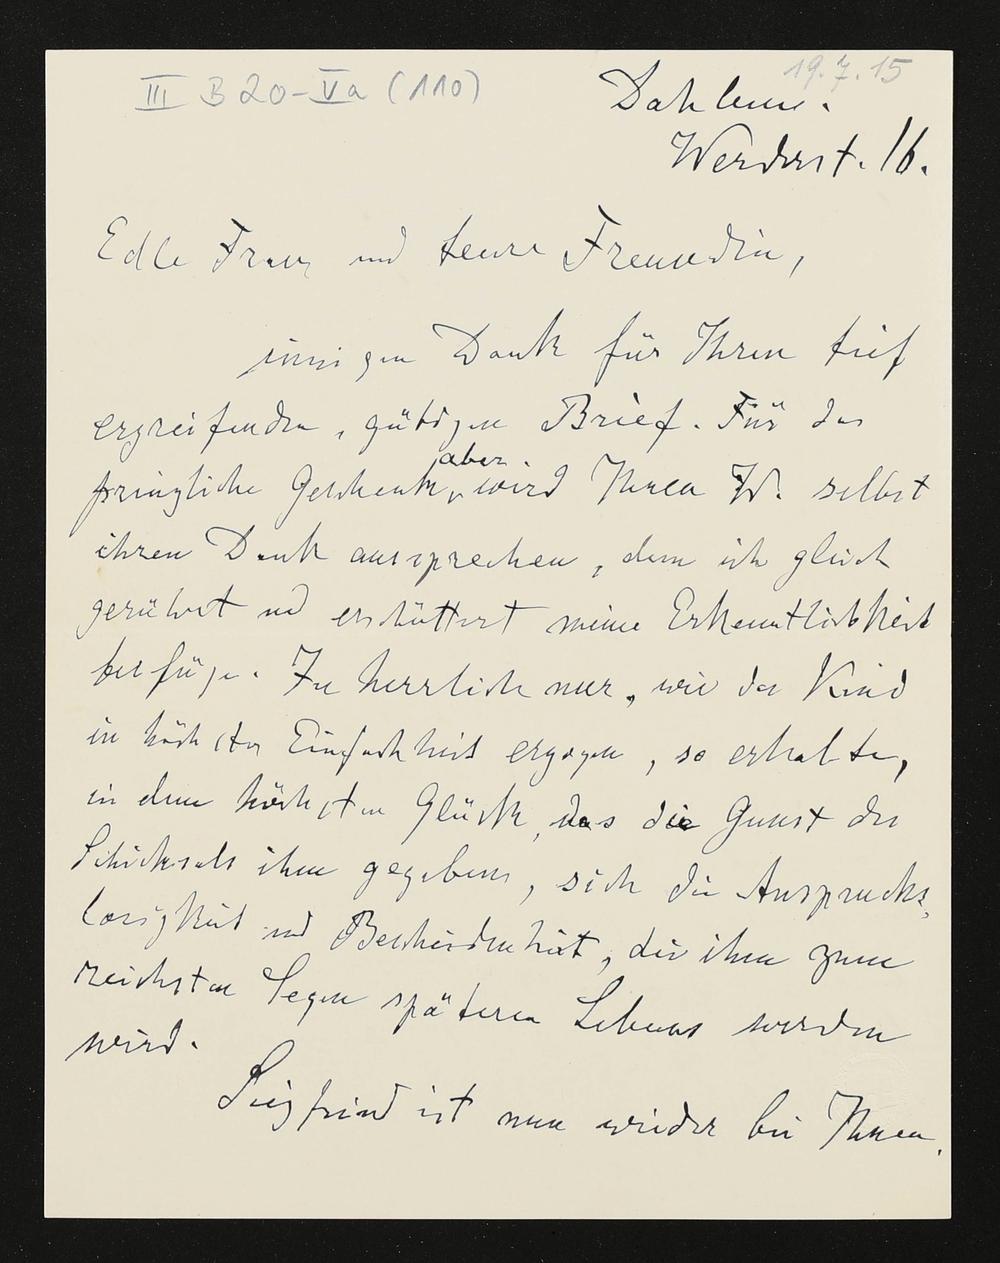 III B 20-Va (110)
19.7.15
Dahlem.
Werderst. 16.
Edle Frau und teure Freundin,
innigen Dank für Ihren tief
ergreifenden, gütigen Brief. Für das
prinzliche Geschenk, aber wird Ihnen W. selbst
ihren Dank aussprechen, dem ich gleich
gerührt und erschüttert meine Erkenntlichkeit
beifüge. Zu herrlich nur, wie das Kind
in höchster Einfachheit erzogen, so erhalte,
in dem höchsten Glück, das die Gunst des
Schicksals ihm gegeben, sich die Anspruchs-
losigkeit und Bescheidenheit, die ihm zum
reichsten Segen späteren Lebens werden
wird.
Siegfried ist nun wieder bei Ihnen.